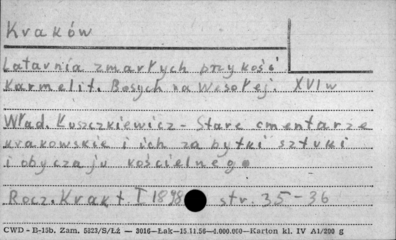 Kraków
Latarnia zmarłych przy kośc.
Karmelit. Bosych na Wesołej. XVI w
Wład. Łuszczkiewicz - Stare cmentarze
krakowskie i ich zabytki sztuki
i obyczaju kościelnego
Rocz. Krak t. I 1898 str. 35-36
CWD - B-15b. Zam. 5823/S/Łż — 3016—Łak—15.11.56—6.000.000—Karton kl. IV A1/200 g